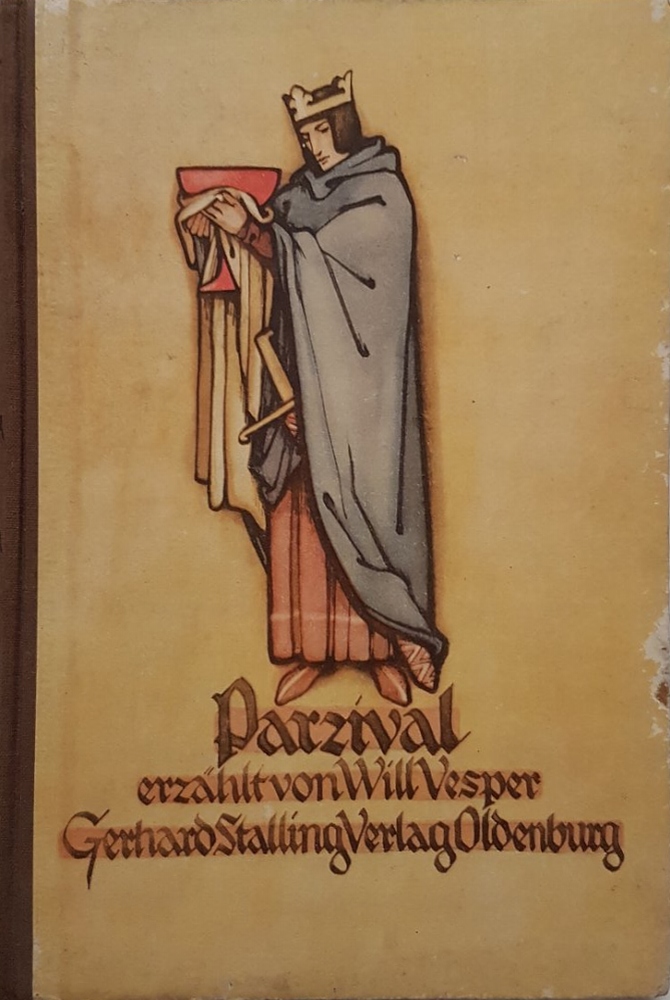 Parzival
erzählt von Will Vesper
Gerhard Stalling Verlag Oldenburg